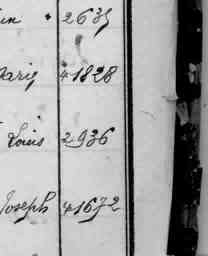 in 2635
Marie 41828
Louis 2936
Joseph 41672